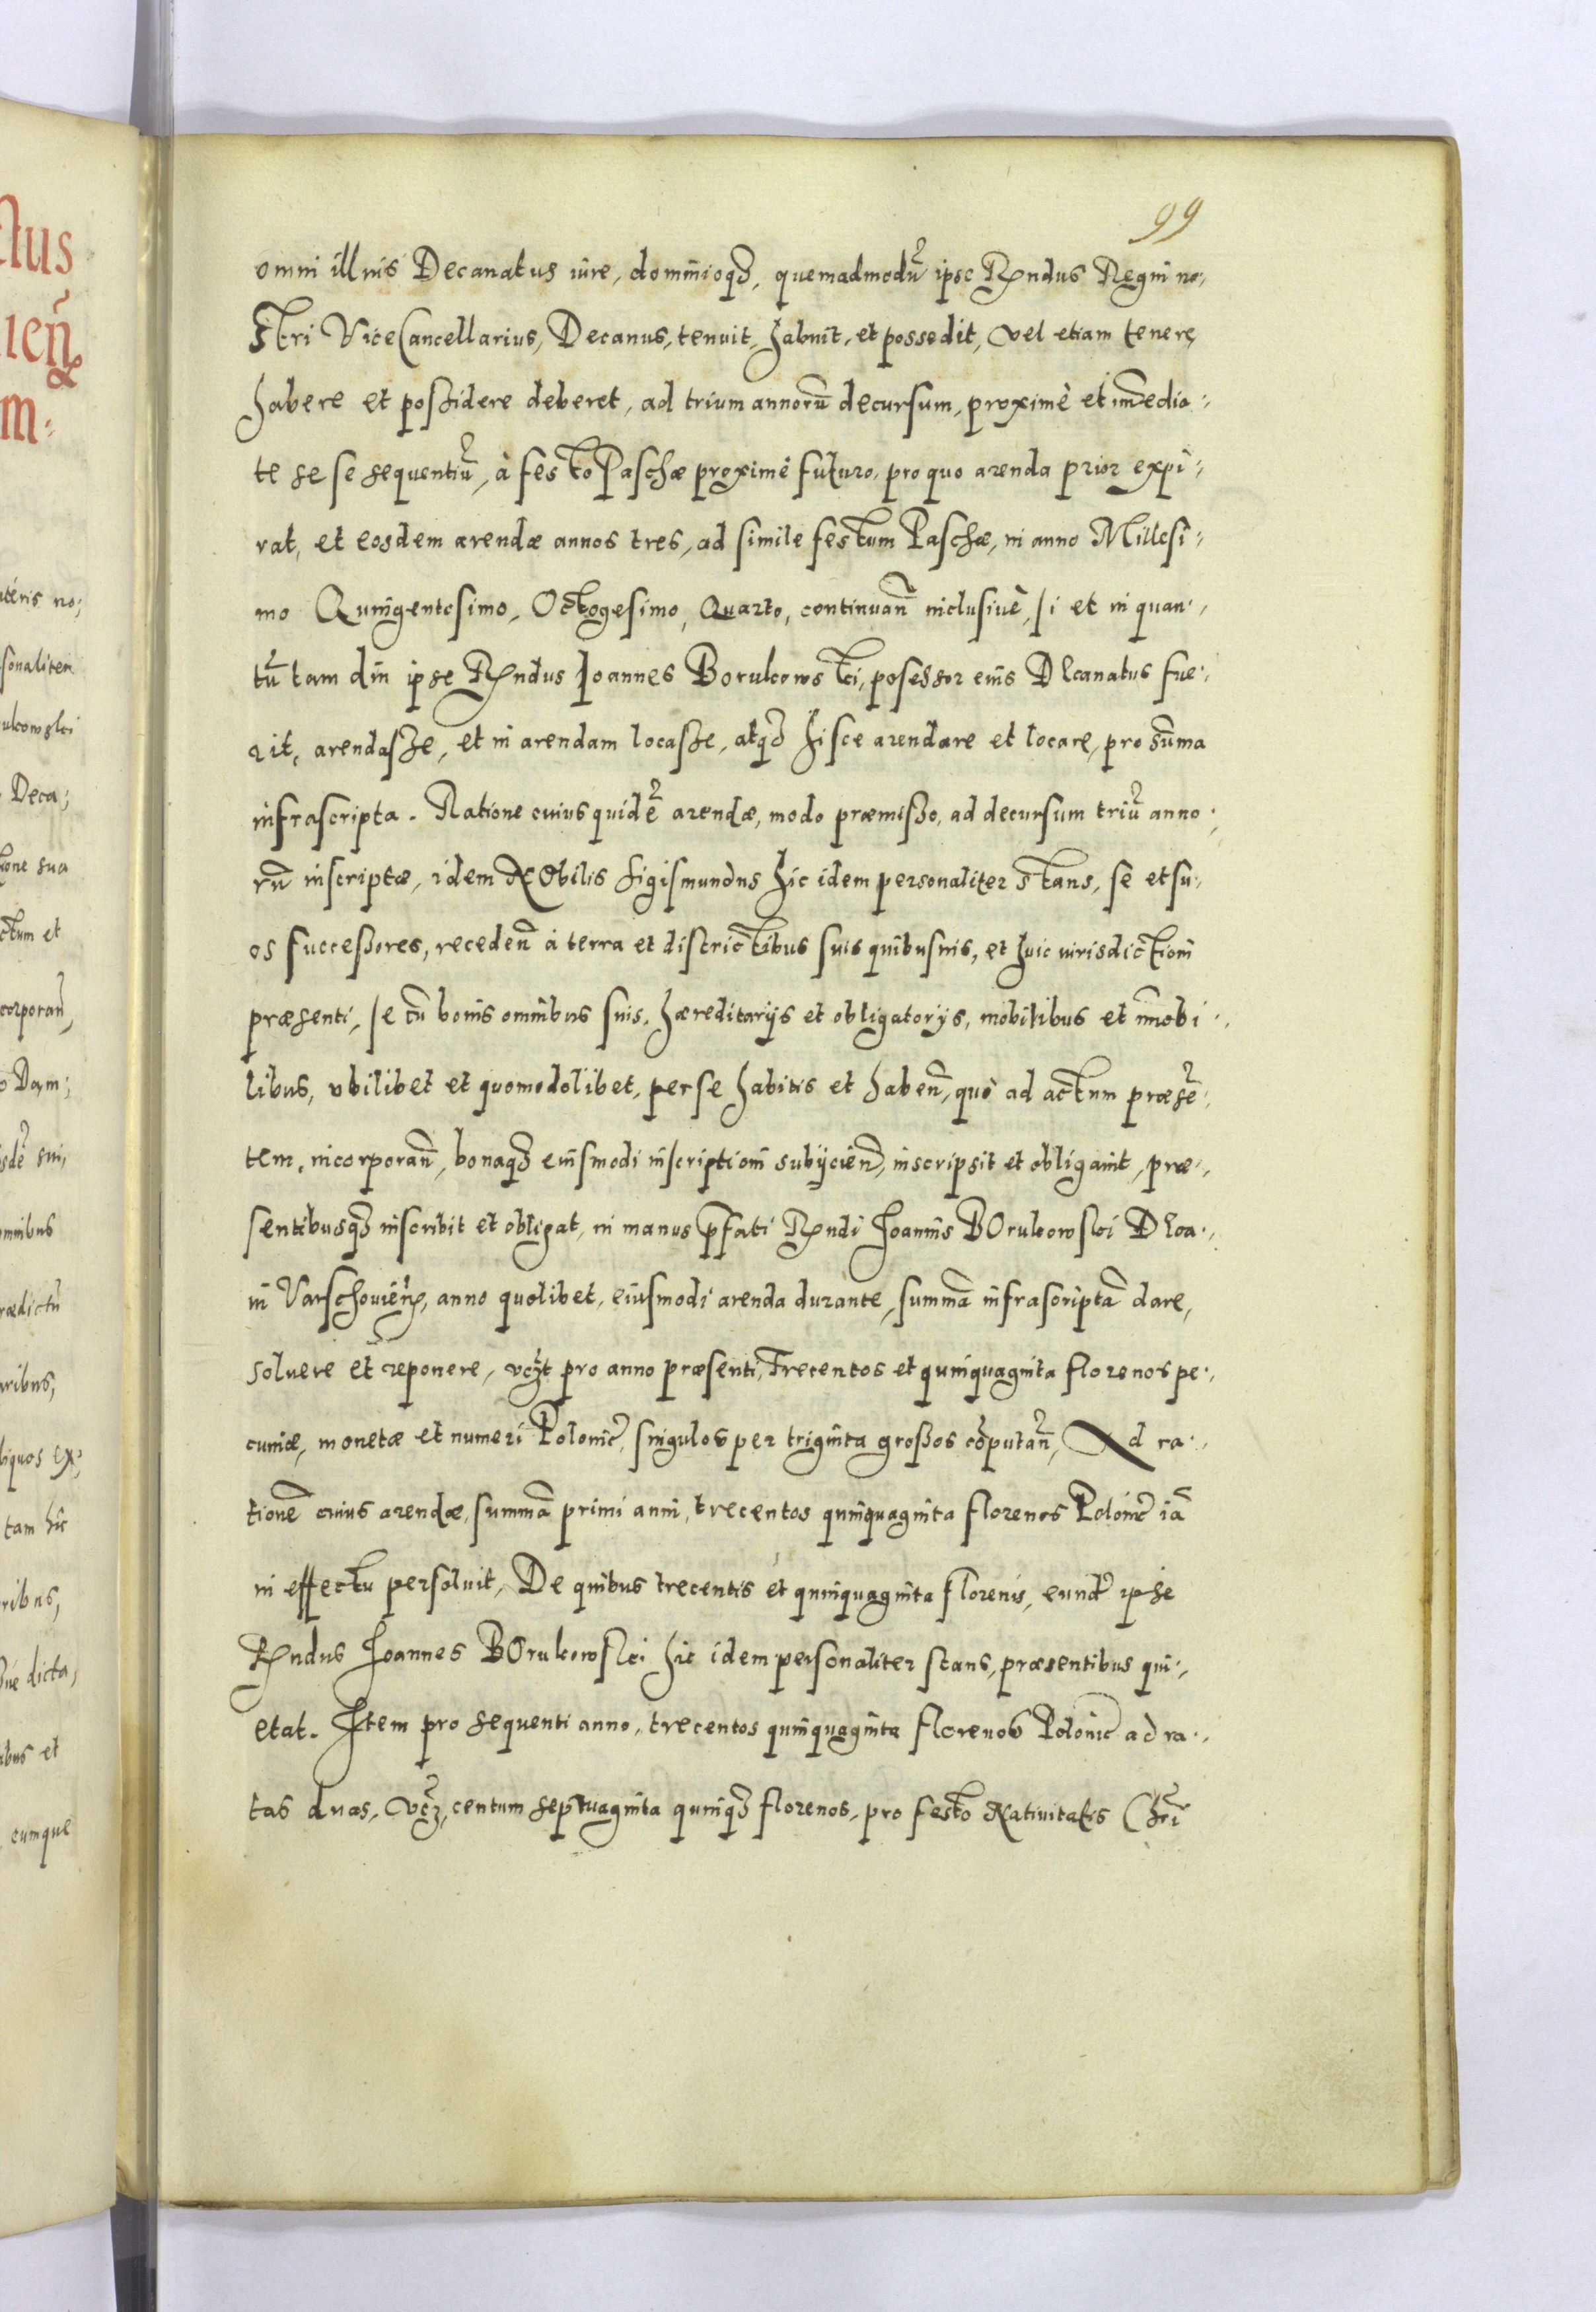 99
omni illius Decanatus iure, dominioqȝ, quemadmodū ipse Rndus Regni no,,
stri ViceCancellarius, Decanus, tenuit, habuit, et possedit, vel etiam tenere,
habere et possidere deberet, ad trium annorū decursum, proximè et īmedia,,
te se se sequentiū, à festo Paschæ proximè futuro, pro quo arenda prior expi,,
rat, et eosdem arendæ annos tres, ad simile festum Paschæ, in anno Millesi,,
mo Quingentesimo, Octogesimo, Quarto, continuañ inclusivè, si et in quan,,
tū tam diu ipse Rndus Joannes Borukowski, posessor eius Decanatus fue,,
rit, arendasse, et in arendam locasse, atqȝ hisce arendare et locare, pro sūma
infrascripta. Ratione cuius quidē arendæ, modo præmisso, ad decursum triū anno,,
rū inscriptæ, idem Nobilis Sigismundus hic idem personaliter stans, se et su,,
os successores, recedeñ à terra et districtibus suis quibusvis, et huic iurisdictioni
præsenti, se cū bonis omnibus suis, hæreditarijs et obligatorijs, mobilibus et īmobi,,
libus, ubilibet et quomodolibet, per se habitis et habeñ, quò ad actum præsē,,
tem, incorporañ, bonaqȝ eiusmodi inscriptioni subijcieñ, inscripsit et obligavit, præ,,
sentibusqȝ inscribit et obligat, in manus p̄fati Rndi Joannis BOrukowski Deca,,
ni Varschovieñ, anno quolibet, eiusmodi arenda durante, summā infrascriptā dare,
solvere et reponere, vczt pro anno præsenti, Trecentos et quinquaginta florenos pe,,
cuniæ, monetæ et numeri Polonic̄, singulos per triginta grossos cōputañ, Ad ra,,
tionē cuius arendæ, summā primi anni, trecentos quinquaginta florenos Polonic̄ iā
in effectu persolvit, De quibus trecentis et quinquaginta florenis, eundē ipse
Rndus Joannes BOrukowski hic idem personaliter stans, præsentibus qui,,
etat. Item pro sequenti anno, trecentos quinquaginta florenos Polonic̄ ad ra,,
tas duas, vcz, centum septuaginta quinqȝ florenos, pro festo Nativitatis Chrī